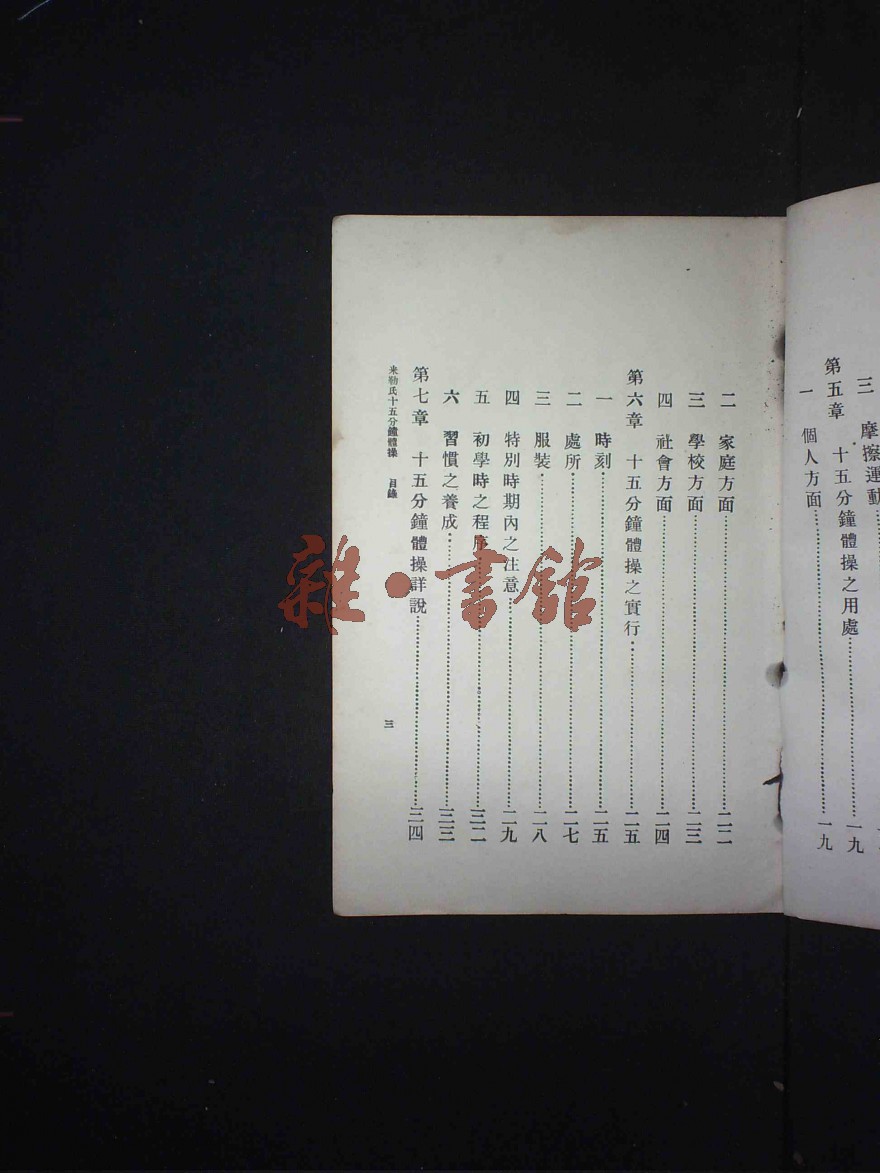 三 摩擦運動
第五章 十五分鐘體操之用處……一九
一 個人方面……一九
二 家庭方面……二二
三 學校方面……二三
四 社會方面……二四
第六章 十五分鐘體操之實行……二五
一 時刻……二五
二 處所……二七
三 服裝……二八
四 特別時期內之注意……二九
五 初學時之程序……三二
六 習慣之養成……三三
第七章 十五分鐘體操詳說……三四
米勒氏十五分鐘體操 目錄 三
雜·書館